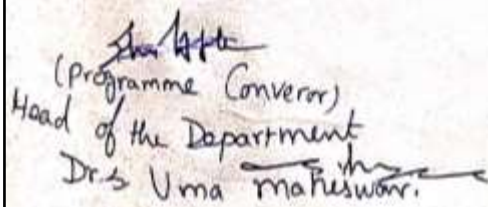 (Programme Converor)
Head of the Department
Dr.S Uma Maheswari.